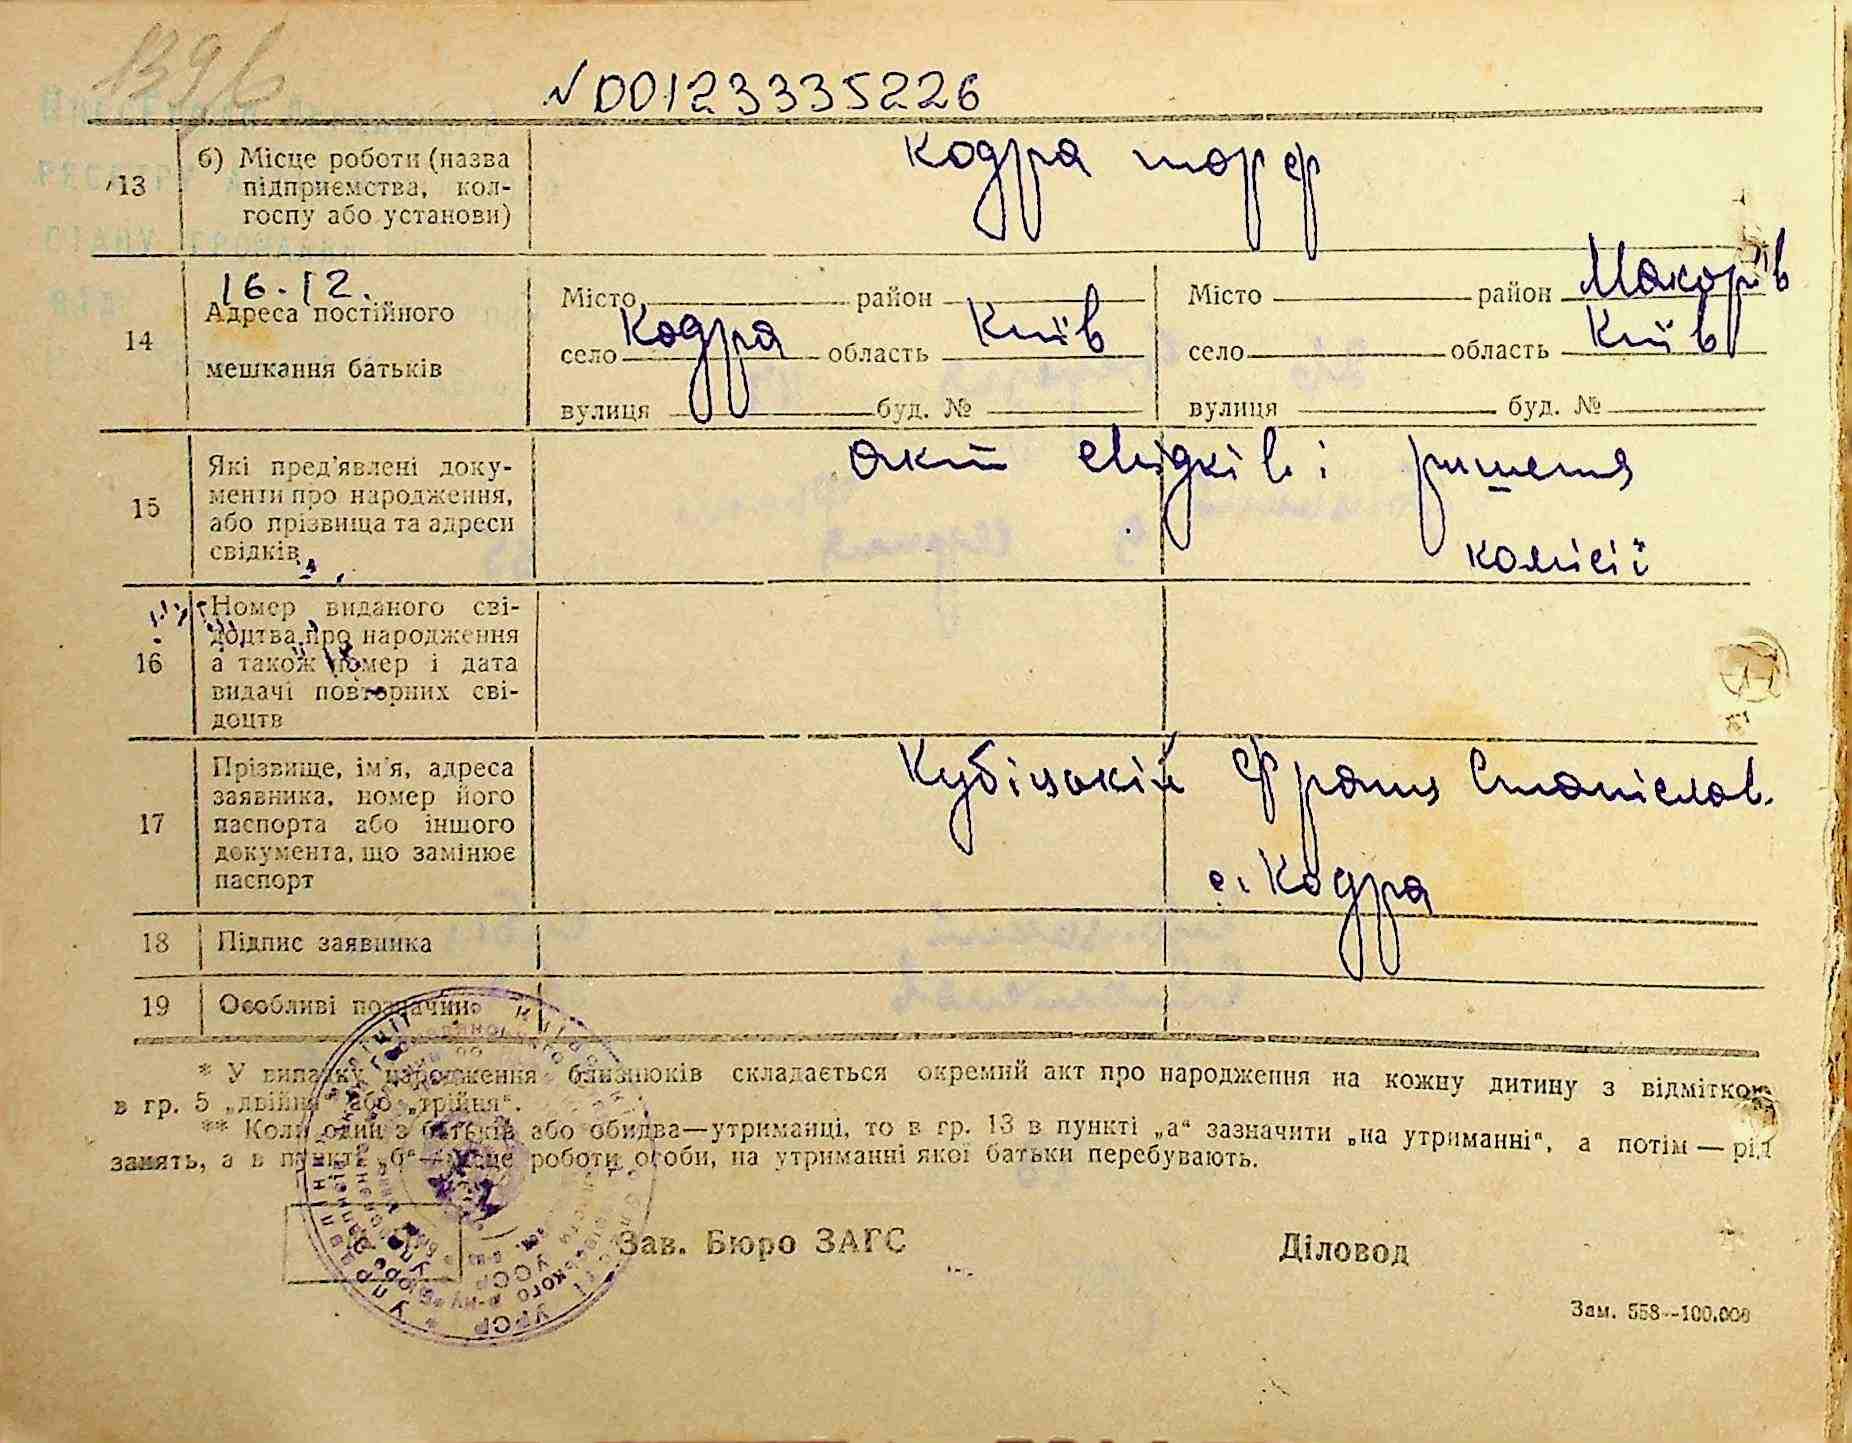 1396
N00123335226
13
б) Місце роботи (назва
підприємства, кол-
госпу або установи)
Кодра торф
14
16.12.
Адреса постійного
мешкання батьків
Місто район
село Кодра область Київ
вулиця буд. №
Місто район Макорів
село область Київ
вулиця буд. №
15
Які пред'явлені доку-
менти про народження,
або прізвища та адреси
свідків
акт свідків і ришення
комісії
16
Номер виданого сві-
доцтва про народження
а також номер і дата
видачі повторних сві-
доцтв
17
Прізвище, ім'я, адреса
заявника, номер його
паспорта або іншого
документа, що замінює
паспорт
Кубіцькій Франц Станіслав.
с. Кодра
18 Підпис заявника
19 Особливі позначки
* У випадку народження близнюків складається окремий акт про народження на кожну дитину з відміткою
в гр. 5 „двійня“ або „трійня“.
** Коли один з батьків або обидва—утриманці, то в гр. 13 в пункті „а“ зазначити „на утриманні“, а потім — рід
занять, а в пункті „б“—місце роботи особи, на утриманні якої батьки перебувають.
Зав. Бюро ЗАГС Діловод
Зам. 558—100.000